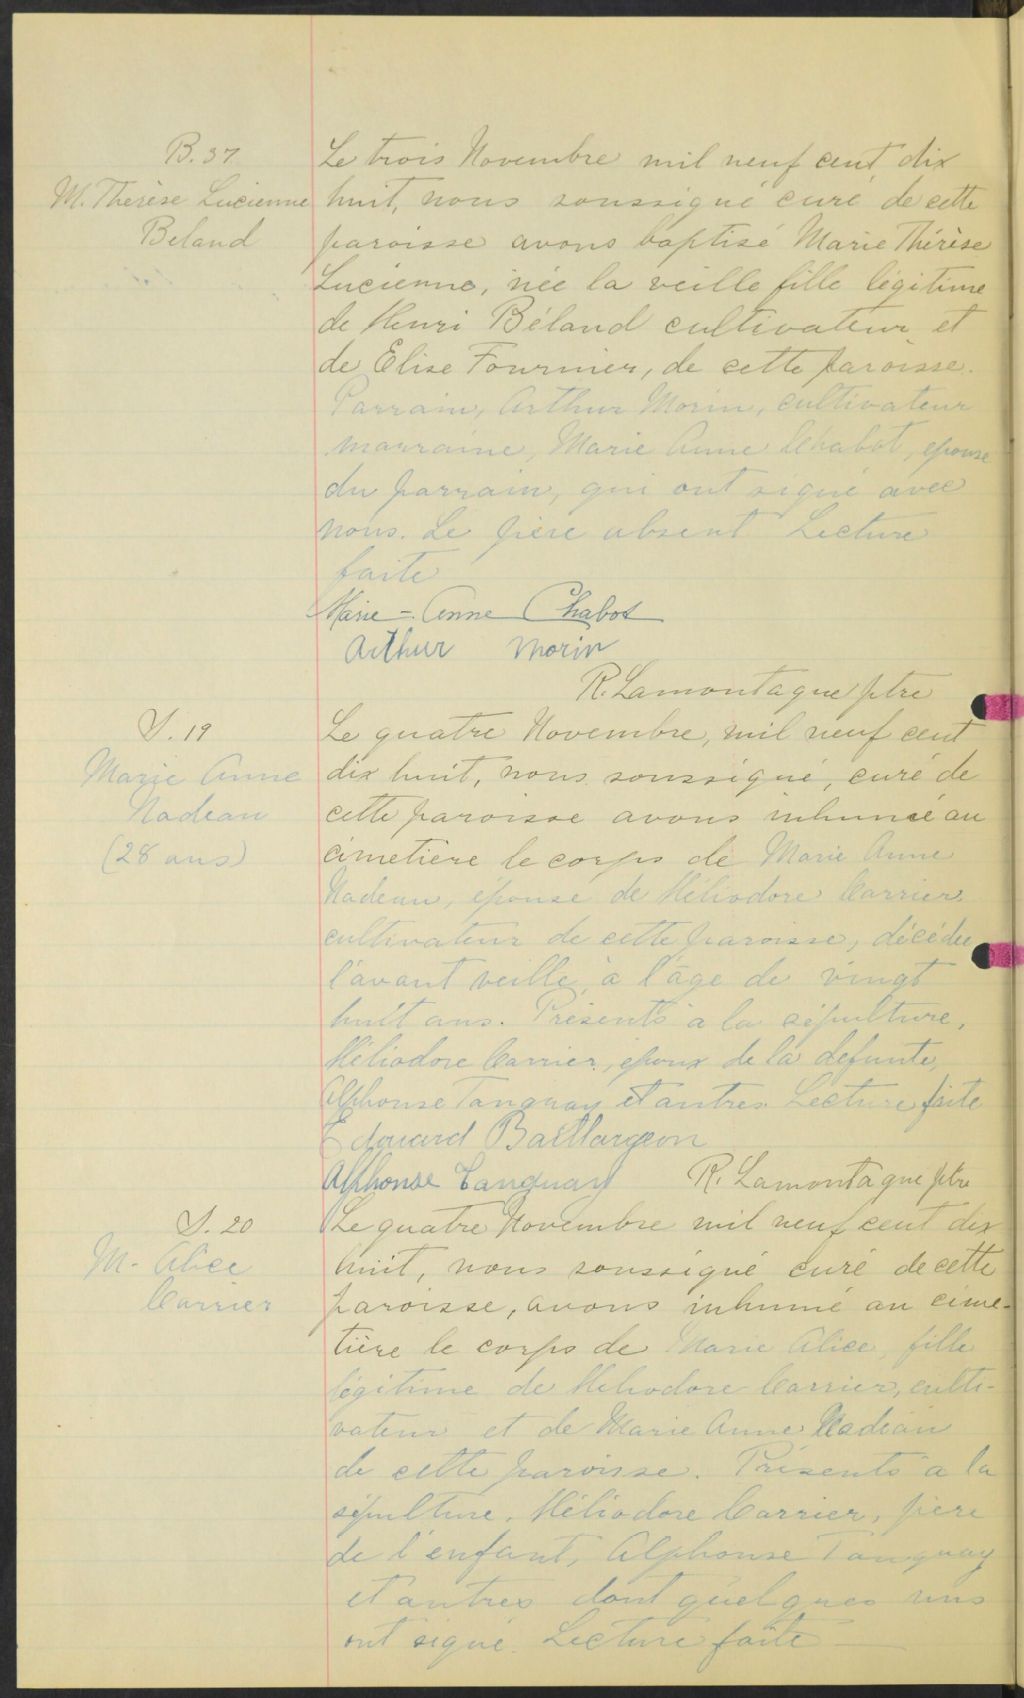 B. 37
M. Therèse Lucienne
Beland
Le trois Novembre mil neuf cent dix
huit, nous soussigné curé de cette
paroisse avons baptisé Marie Thérèse
Lucienne, née la veille fille légitime
de Henri Béland cultivateur et
de Elise Fournier, de cette paroisse.
Parrain, Arthur Morin, cultivateur
marraine, Marie Anne Chabot, epouse
du parrain, qui ont signé avec
nous. Le père absent Lecture
faite
Marie-Anne Chabot
Arthur Morin
R. Lamontagne ptre
S. 19
Marie Anne
Nadeau
(28 ans)
Le quatre Novembre, mil neuf cent
dix huit, nous soussigné, curé de
cette paroisse avons inhumé au
cimetière le corps de Marie Anne
Nadeau, épouse de Héliodore Carrier
cultivateur de cette paroisse, décédée
l'avant veille à l'âge de vingt
huit ans. Présents à la sépulture,
Héliodore Carrier, epoux de la defunte,
Alphonse Tanguay et autres. Lecture faite
Edouard Baillargeon
Alphonse Tanguay R. Lamontagne ptre
S. 20
M. Alice
Carrier
Le quatre Novembre mil neuf cent dix
huit, nous soussigné curé de cette
paroisse, avons inhumé au cime-
tière le corps de Marie Alice, fille
légitime de Heliodore Carrier, culti-
vateur et de Marie Anne Nadeau
de cette paroisse. Présents à la
sépulture, Héliodore Carrier, père
de l'enfant, Alphonse Tanguay
et autres dont quelques uns
ont signé. Lecture faite